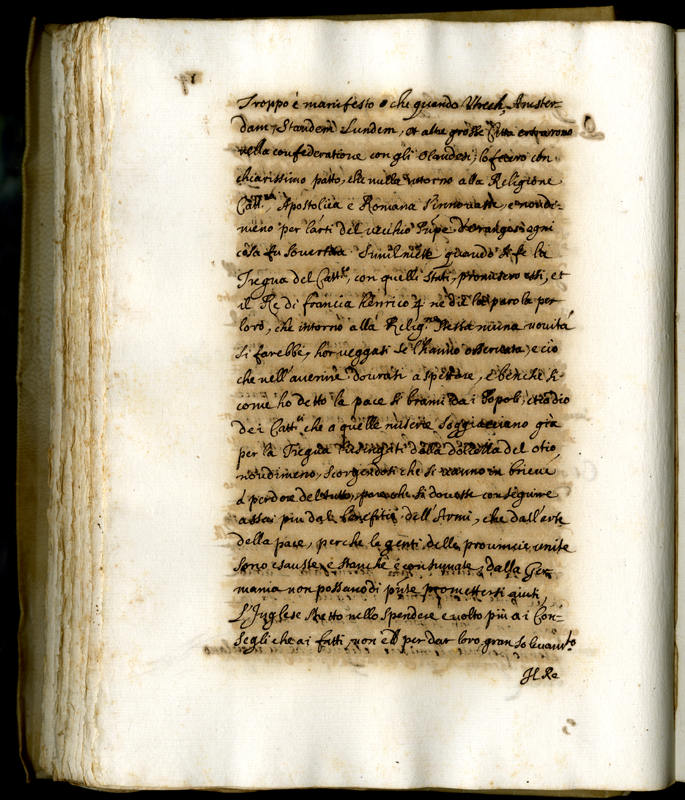 Troppo è manifesto che quando Utrech, Amster-
dam, Standem Lundem, et altre grosse Citta entrarono
nella confederatione con gli Olandesi, lo fecero con
chiarissimo patto, che nulla intorno alla Religione
Catt.ca Apostolica e Romana s'innovasse, e nondi-
meno per l'arti del vecchio Prīpe d'Oranges ogni
cosa fu sovertita Similmēte quando si fe la
Tregua del Catt.co con quelli Stati, promisero essi, et
il Re di francia Henrico 4 ne diè la parola per
loro, che intorno alla Relig.ne stessa niuna novità
si farebbe, hor veggasi se l'hanno osservata, e ciò
che nell'avenire dovrati aspettare, e benche si
come ho detto la pace si brami da i Popoli, etiādio
dei Catt.ci che a quelle miserie soggiacevano già
per la Tregua lusingati dalla dolcezza del otio,
nondimeno, scorgendosi che si vanno in brieve
a perdere del tutto, pare che si dovesse conseguire
assai più dal benefitio dell'Armi, che dall'arte
della pace, perche le genti delle provincie unite
sono esauste e stanche e consumate, dalla Ger-
mania non possano di più promettersi aiuti,
L'Inglese stretto nello spendere e volto più a i Con-
segli che ai fatti, non è per dar loro gran sollevam.to
Il Re